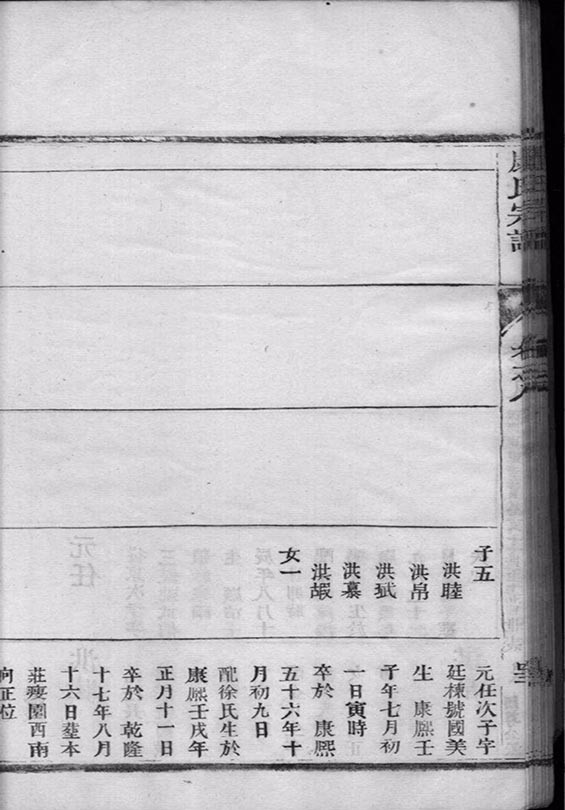 氏宗譜
卷
子五
洪睦
洪帛
洪
洪慕
洪嘏
女一
元任次子字
廷棟號國美
生 康熈壬
子年七月初
一日寅時
卒於 康熈
五十六年十
月初九日
配徐氏生於
康熈壬戌年
正月十一日
卒於 乾隆
十七年八月
十六日塟本
莊瘦園西南
向正位